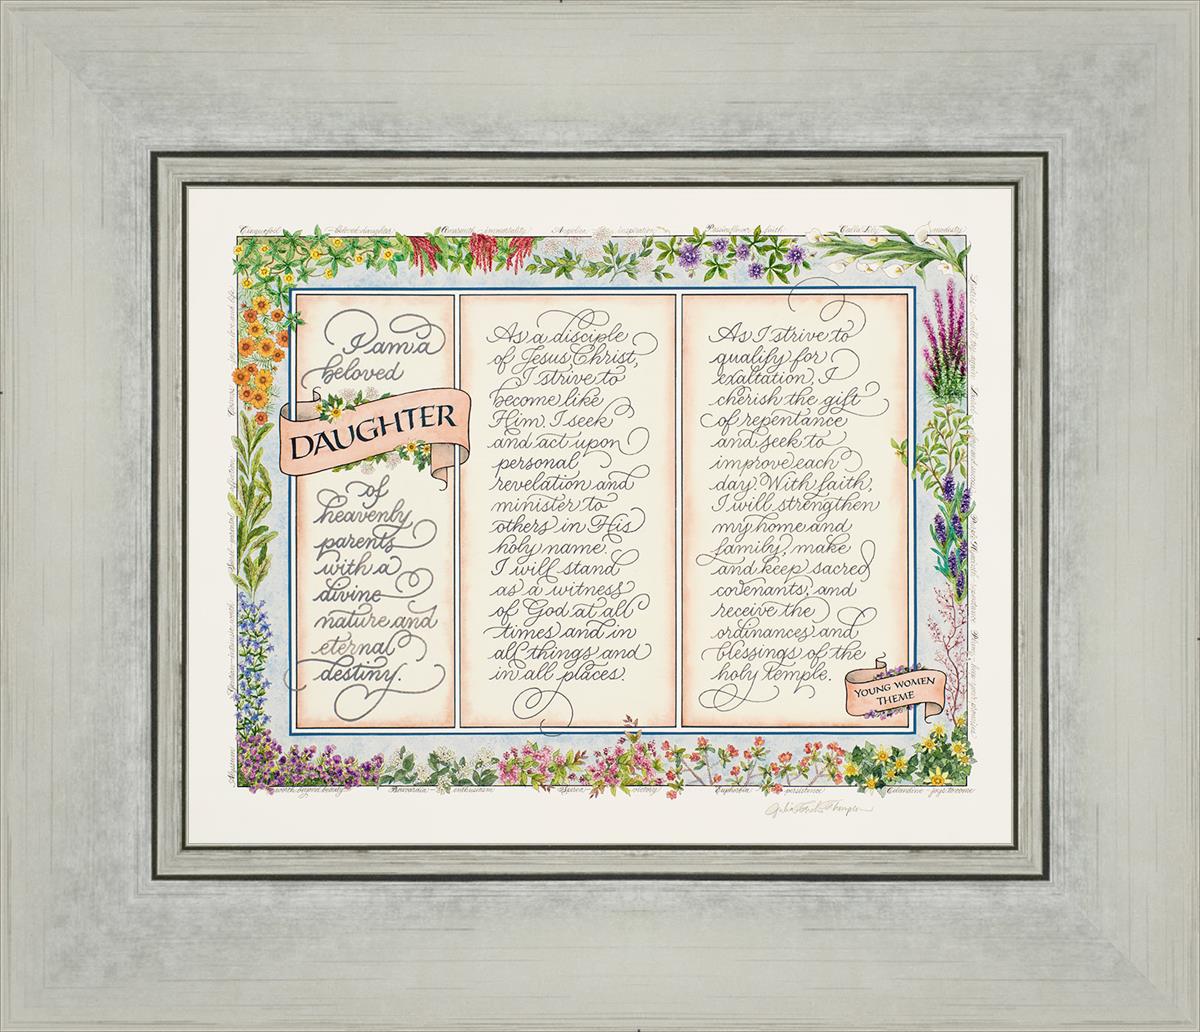 Cinquefoil - beloved daughter Amaranth - immortality Angelica - inspiration Passionflower - faith Calla Lily - modesty
I am a
beloved
DAUGHTER
of
heavenly
parents
with a
divine
nature and
eternal
destiny.
As a disciple
of Jesus Christ,
I strive to
become like
Him. I seek
and act upon
personal
revelation and
minister to
others in His
holy name.
I will stand
as a witness
of God at all
times and in
all things and
in all places.
As I strive to
qualify for
exaltation, I
cherish the gift
of repentance
and seek to
improve each
day. With faith,
I will strengthen
my home and
family, make
and keep sacred
covenants, and
receive the
ordinances and
blessings of the
holy temple.
YOUNG WOMEN
THEME
Alyssum
worth beyond beauty Bouvardia - enthusiasm victory Euphorbia - persistence Celandine - joys to come